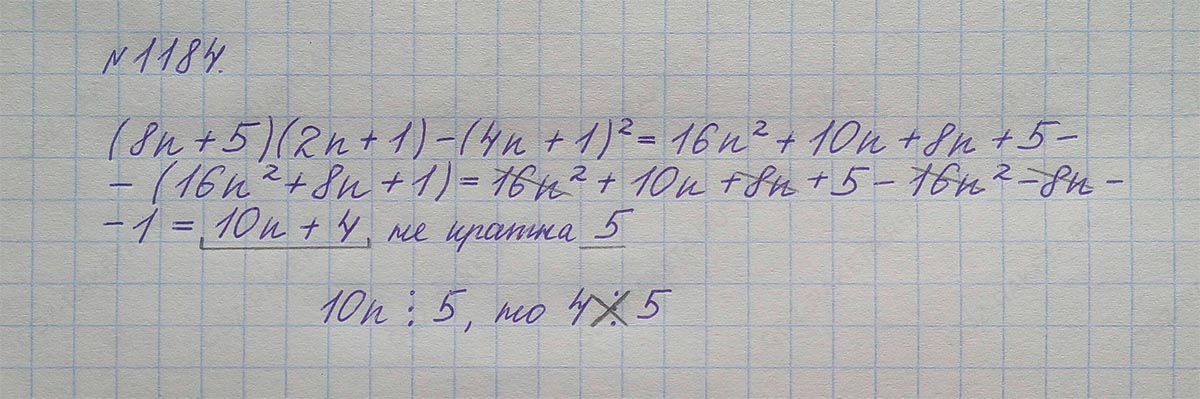 №1184.
(8n+5)(2n+1)-(4n+1)²=16n²+10n+8n+5-
-(16n²+8n+1)=16n²+10n+8n+5-16n²-8n-
-1=10n+4 не кратна 5
10n⋮5, то 4⋮5